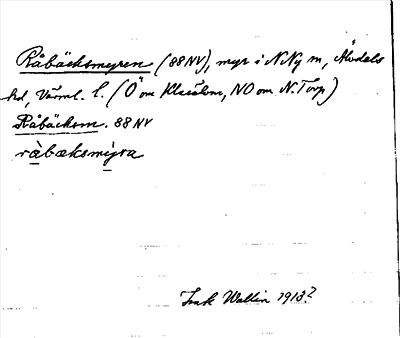 Råbäcksmyren (88 NV), myr i N Ny sn, Älvdals
hd, Värml. l. (Ö om Klarälven, NO om N. Torp)
Råbäcksm. 88 NV
ràbæksmỳra
Isak Wallin 1913?